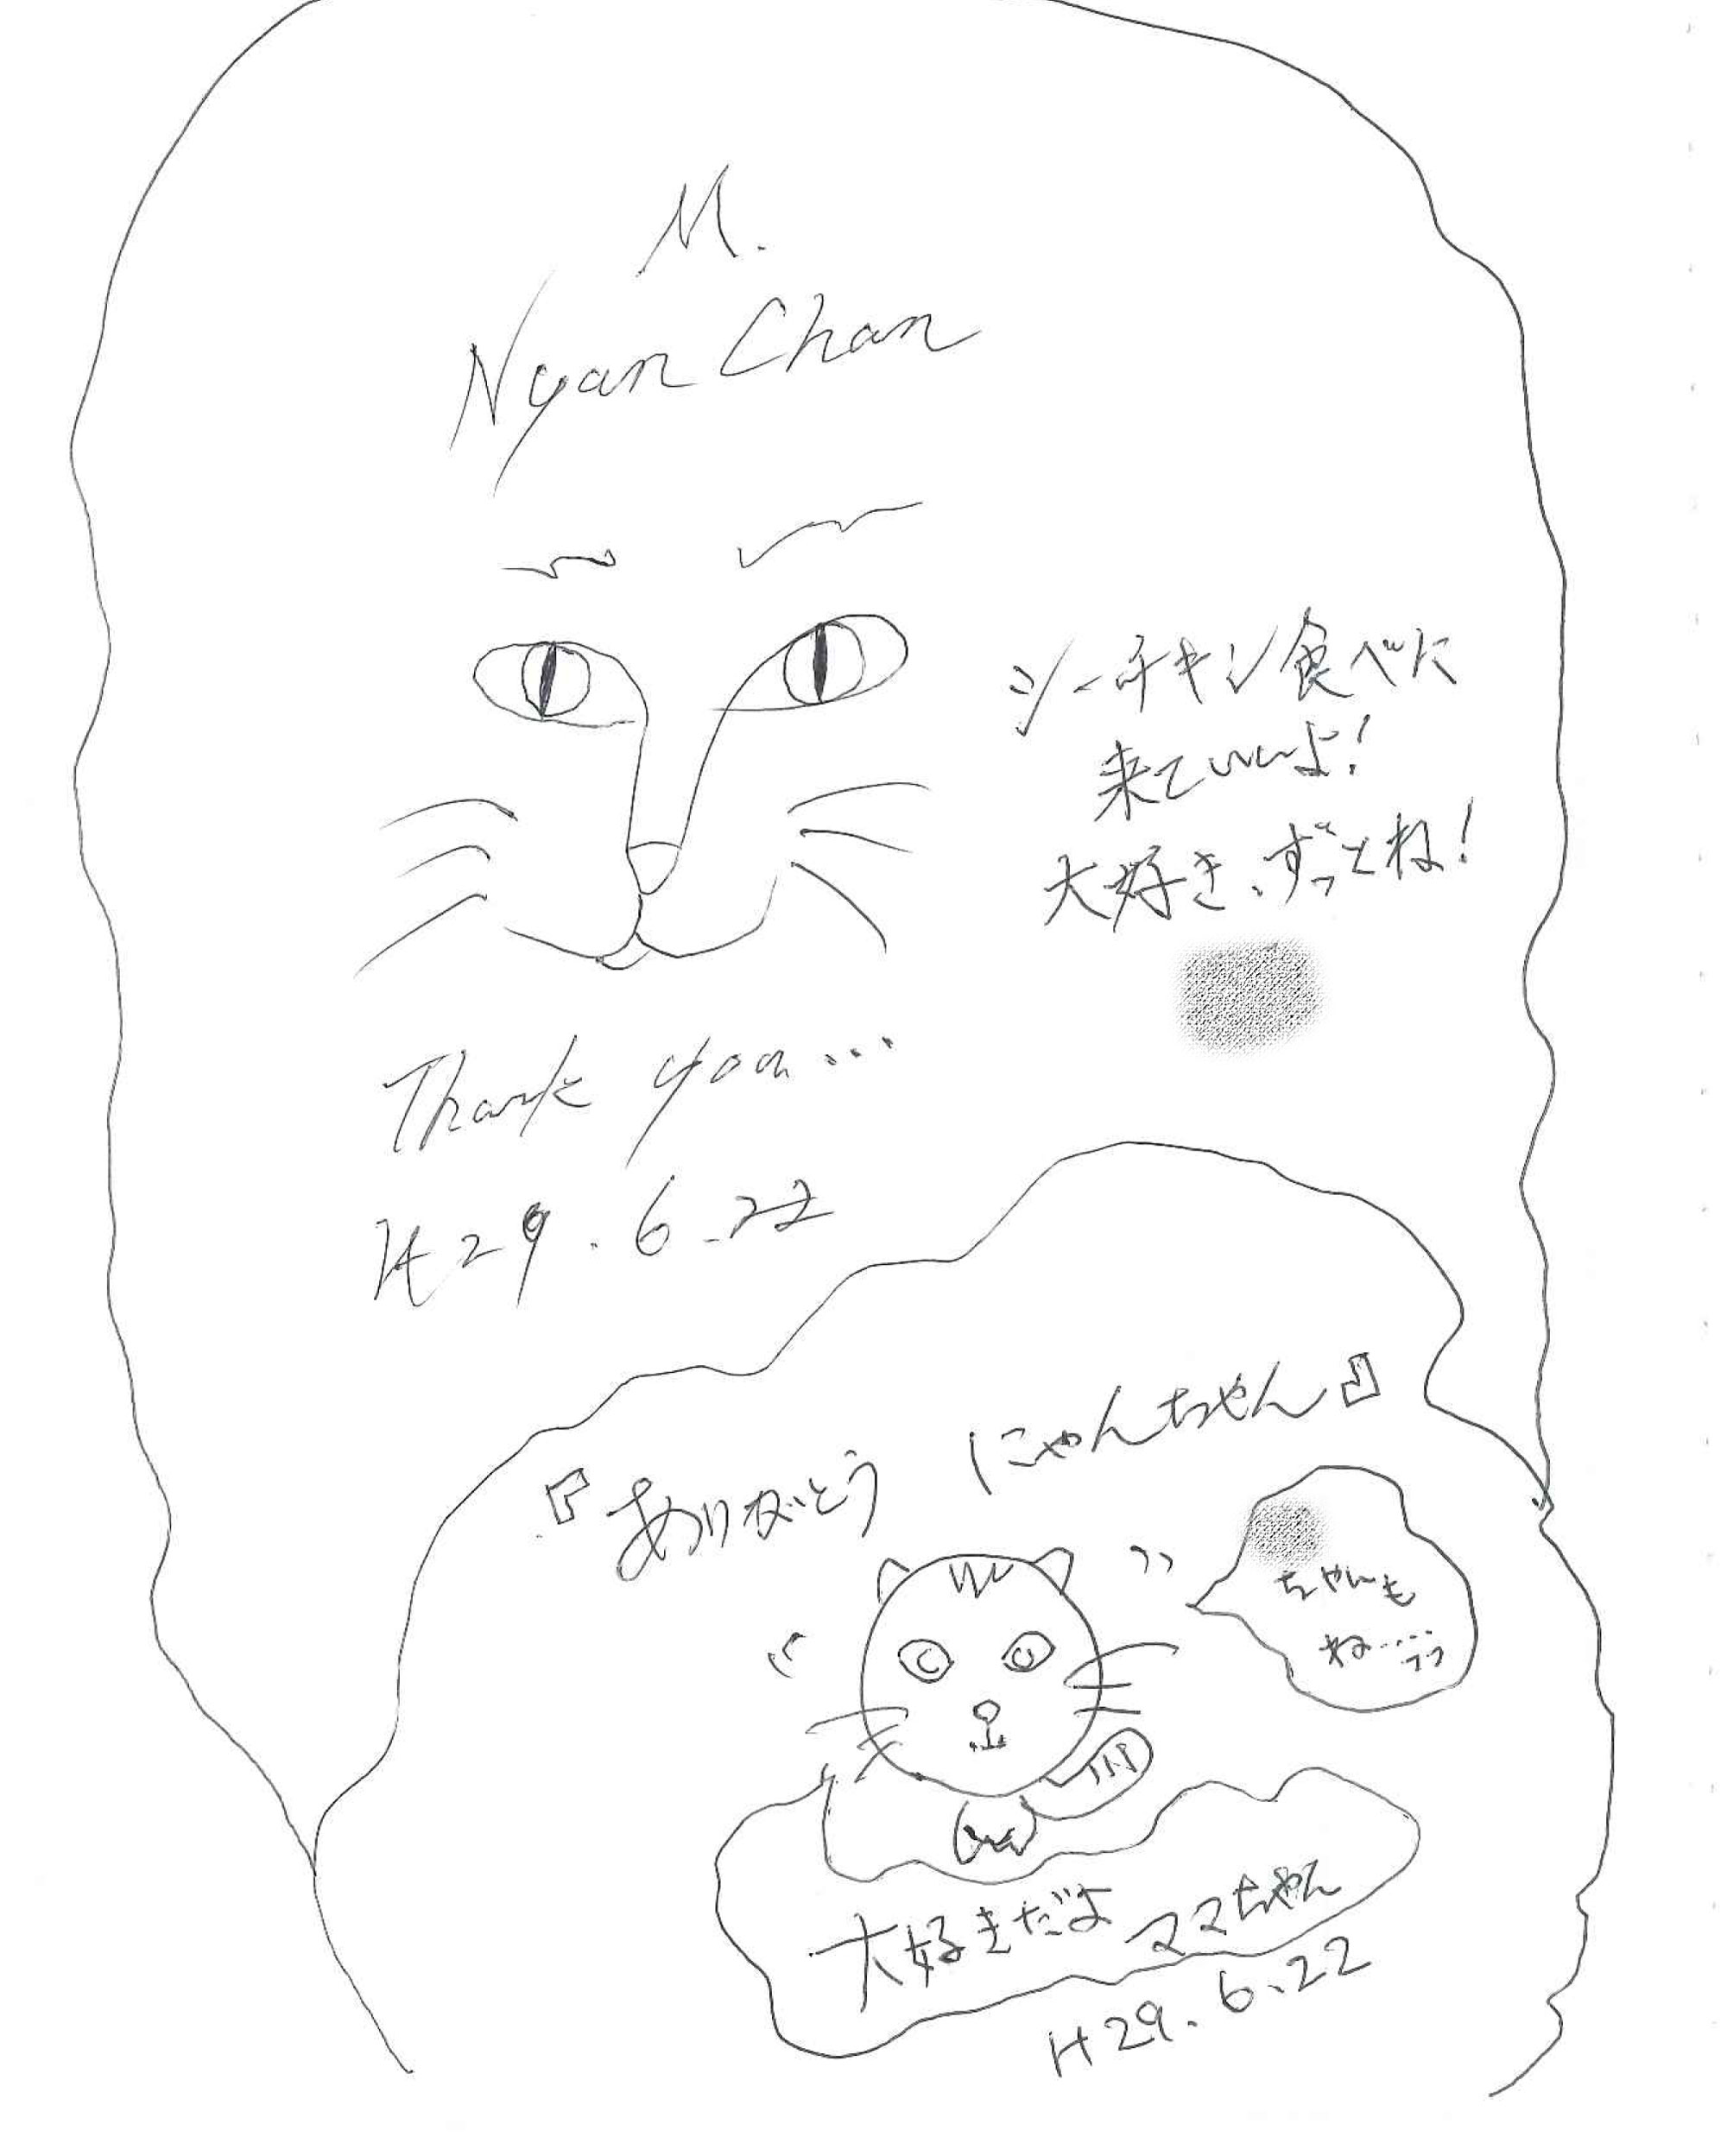 M.
Nyan Chan
シーチキン食べに
来ていいよ!
大好き、ずっとね!
Thank you...
H29.6.22
『ありがとう にゃんちゃん』
ちゃんも
ね....
大好きだよ ママちゃん
H29.6.22